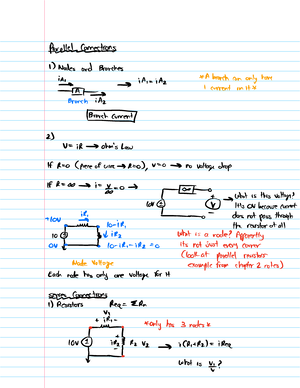 Parallel Connections
1) Nodes and Branches
iA₁
A
iA₁ = iA₂
Branch iA₂
*A branch can only have
1 current on it*
Branch current
2)
V = iR → ohm's Law
If R=0 (piece of wire → R=0), V=0 → no voltage drop
If R=∞ → i = V/∞ = 0 →
10V
V
What is this voltage?
It's 10V because current
does not pass through
the resistor at all
+10V
iR₁
10-iR₁
iR₂
10
0V
10-iR₁-iR₂=0
What is a node? Apparently
its not just every corner
(look at parallel resistors
example from chapter 2 notes)
Node Voltage
Each node has only one voltage for it
Series Connections
1) Resistors Req = ΣRn
V₁
+ iR₁ -
*only has 3 nodes*
10V
iR₂
R₂ V₂
→ i(R₁+R₂) = iReq
What is V₂/V₁?